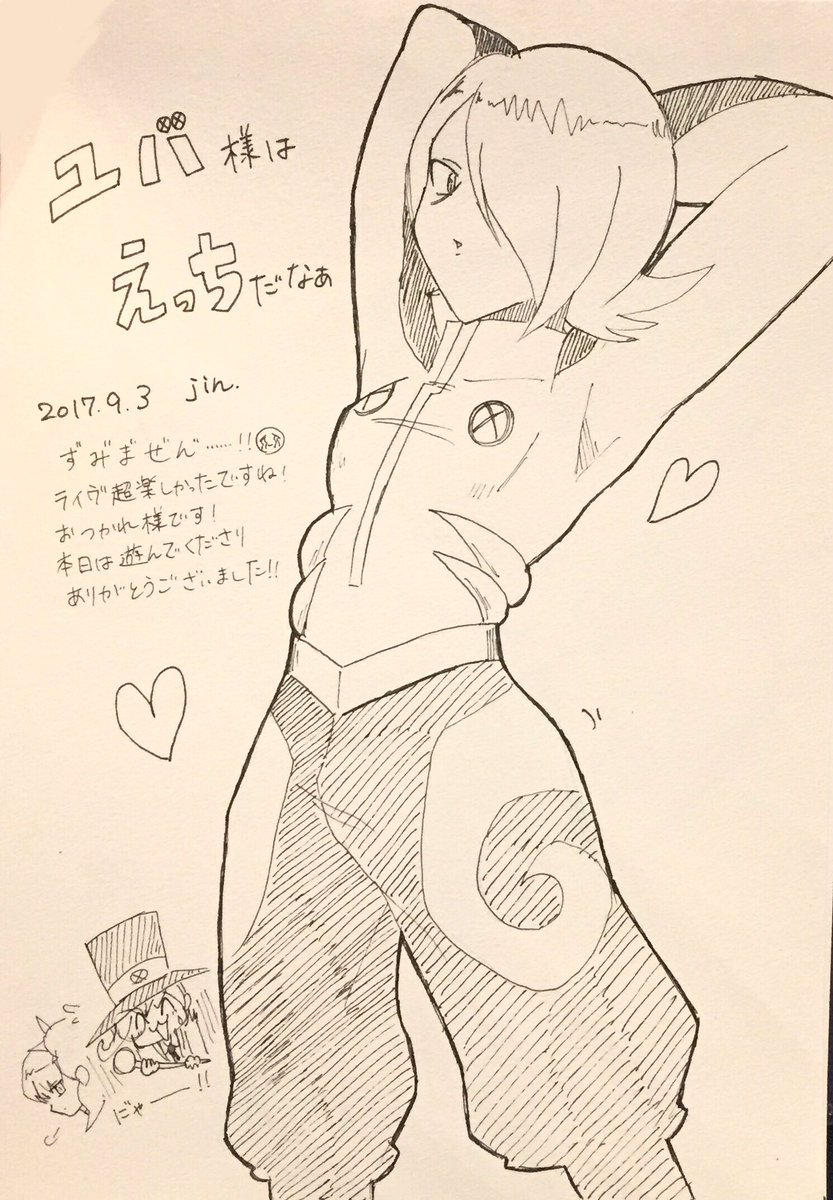 ユバ様は
えっちだなぁ
2017.9.3 jin.
ずみまぜん……!!
ライヴ超楽しかったですね!
おつかれ様です!
本日は遊んでくださり
ありがとうございました!!
にゃー!!